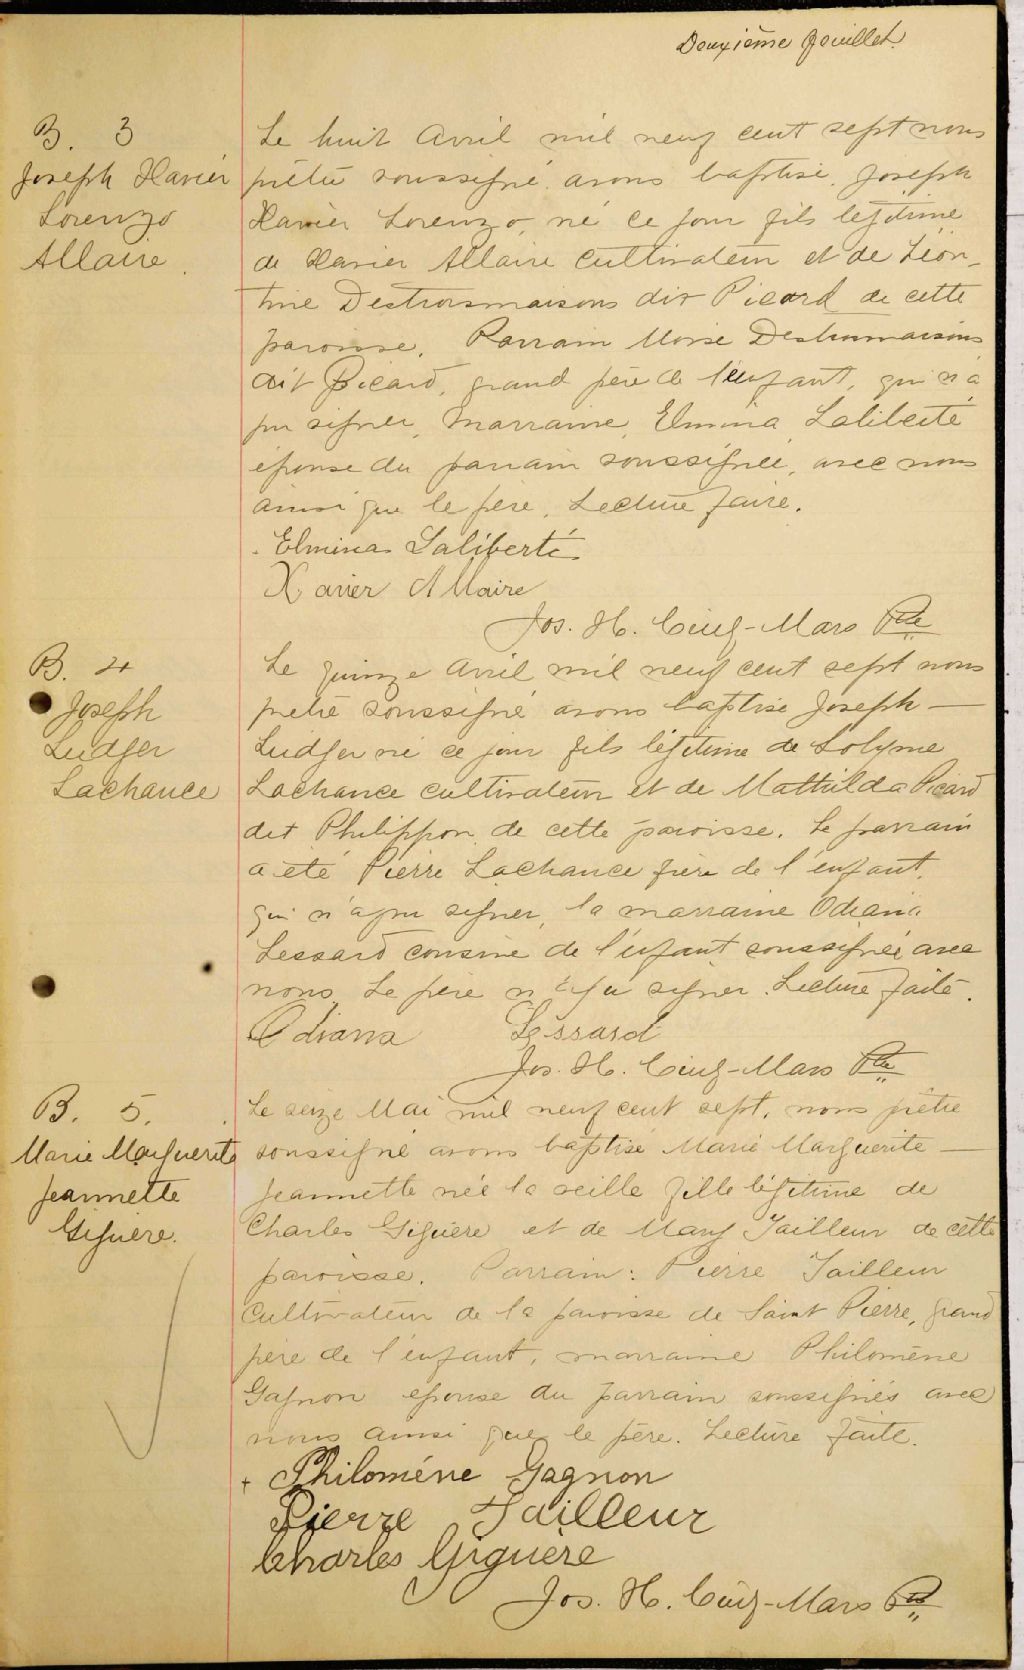 Deuxième feuillet.
B. 3
Joseph Xavier
Lorenzo
Allaire.
Le huit Avril mil neuf cent sept nous
prêtre soussigné avons baptisé Joseph
Xavier Lorenzo, né ce jour fils légitime
de Xavier Allaire cultivateur et de Léon-
tine Destroismaisons dit Picard de cette
paroisse. Parrain Moïse Destroismaisons
dit Picard, grand père de l'enfant, qui n'a
pu signer, marraine, Elmina Laliberté
épouse du parrain soussignée, avec nous
ainsi que le père. Lecture faite.
Elmina Laliberté
Xavier Allaire
Jos. H. Cinq-Mars Ptre
B. 4
Joseph
Ludger
Lachance
Le quinze Avril mil neuf cent sept nous
prêtre soussigné avons baptisé Joseph —
Ludger né ce jour fils légitime de Solyme
Lachance cultivateur et de Mathilda Picard
dit Philippon de cette paroisse. Le parrain
a été Pierre Lachance frère de l'enfant,
qui n'a pu signer, la marraine Odiana
Lessard cousine de l'enfant soussignée avec
nous. Le père n'a pu signer. Lecture faite.
Odiana Lessard
Jos. H. Cinq-Mars Ptre
B. 5.
Marie Marguerite
Jeannette
Giguère.
Le seize Mai mil neuf cent sept, nous prêtre
soussigné avons baptisé Marie Marguerite —
Jeannette née la veille fille légitime de
Charles Giguère et de Mary Tailleur de cette
paroisse. Parrain: Pierre Tailleur
Cultivateur de la paroisse de Saint Pierre, grand
père de l'enfant, marraine Philomène
Gagnon épouse du parrain soussignés avec
nous ainsi que le père. Lecture faite.
+ Philoméne Gagnon
Pierre Tailleur
Charles Giguère
Jos. H. Cinq-Mars Ptre